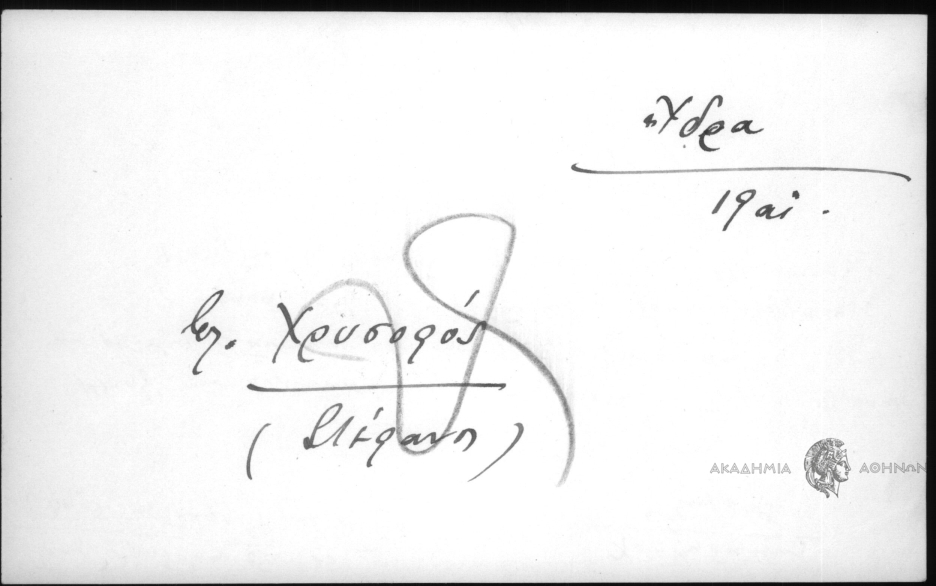 Ὕδρα
19 αἰ.
Χρυσοφός
(Στέφανη)
ΑΚΑΔΗΜΙΑ ΑΘΗΝΩΝ